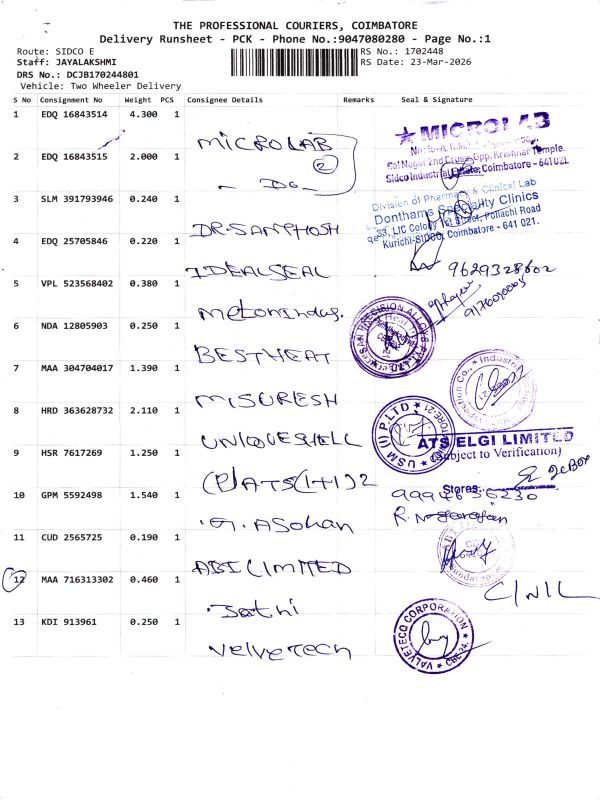 THE PROFESSIONAL COURIERS, COIMBATORE
Delivery Runsheet - PCK - Phone No.:9047080280 - Page No.:1
Route: SIDCO E
RS No.: 1702448
Staff: JAYALAKSHMI
RS Date: 23-Mar-2026
DRS No.: DCJB170244801
Vehicle: Two Wheeler Delivery
S No Consignment No Weight PCS Consignee Details Remarks Seal & Signature
1 EDQ 16843514 4.300 1
MICROLAB
2
2 EDQ 16843515 2.000 1
- DO -
3 SLM 391793946 0.240 1
DR. SANTHOSH
Division of Pharmacy & Clinical Lab
Donthams Speciality Clinics
33, LIC Colony, Street, Pollachi Road
Kurichi-SIDCO, Coimbatore - 641 021.
4 EDQ 25705846 0.220 1
IDEALSEAL
9629328602
5 VPL 523568402 0.380 1
6 NDA 12805903 0.250 1
BESTHEAT
PRECISION ALLOYS PVT LTD
7 MAA 304704017 1.390 1
M SURESH
8 HRD 363628732 2.110 1
UNIQUESHELL
USM (I) P.LTD
ATS ELGI LIMITED
(Subject to Verification)
9 HSR 7617269 1.250 1
(P) ATS (1+1) 2
Stores:
10 GPM 5592498 1.540 1
G. Asohan
9994656230
R. Nagarajan
11 CUD 2565725 0.190 1
ABI LIMITED
12 MAA 716313302 0.460 1
Jothi
C/N/L
13 KDI 913961 0.250 1
Velvetech
VALVETECQ CORPORATION
CBE-24